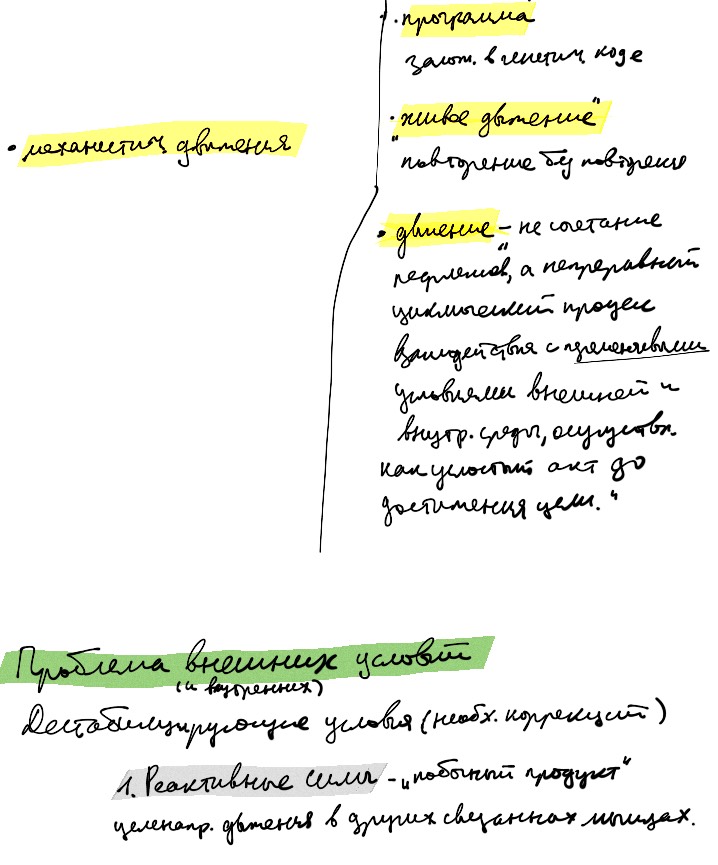 • механистич движения
• программа
залож. в генетич. коде
• "живое движение"
"повторение без повторения
• движение – не сочетание
рефлексов, а непрерывный
циклический процесс
взаимодействия с изменчивыми
условиями внешней и
внутр. среды, осуществл.
как целостный акт до
достижения цели."
Проблема внешних условий
(и внутренних)
Дестабилизирующие условия (необх. коррекций)
1. Реактивные силы – „побочный продукт"
целенапр. движения в других связанных мышцах.